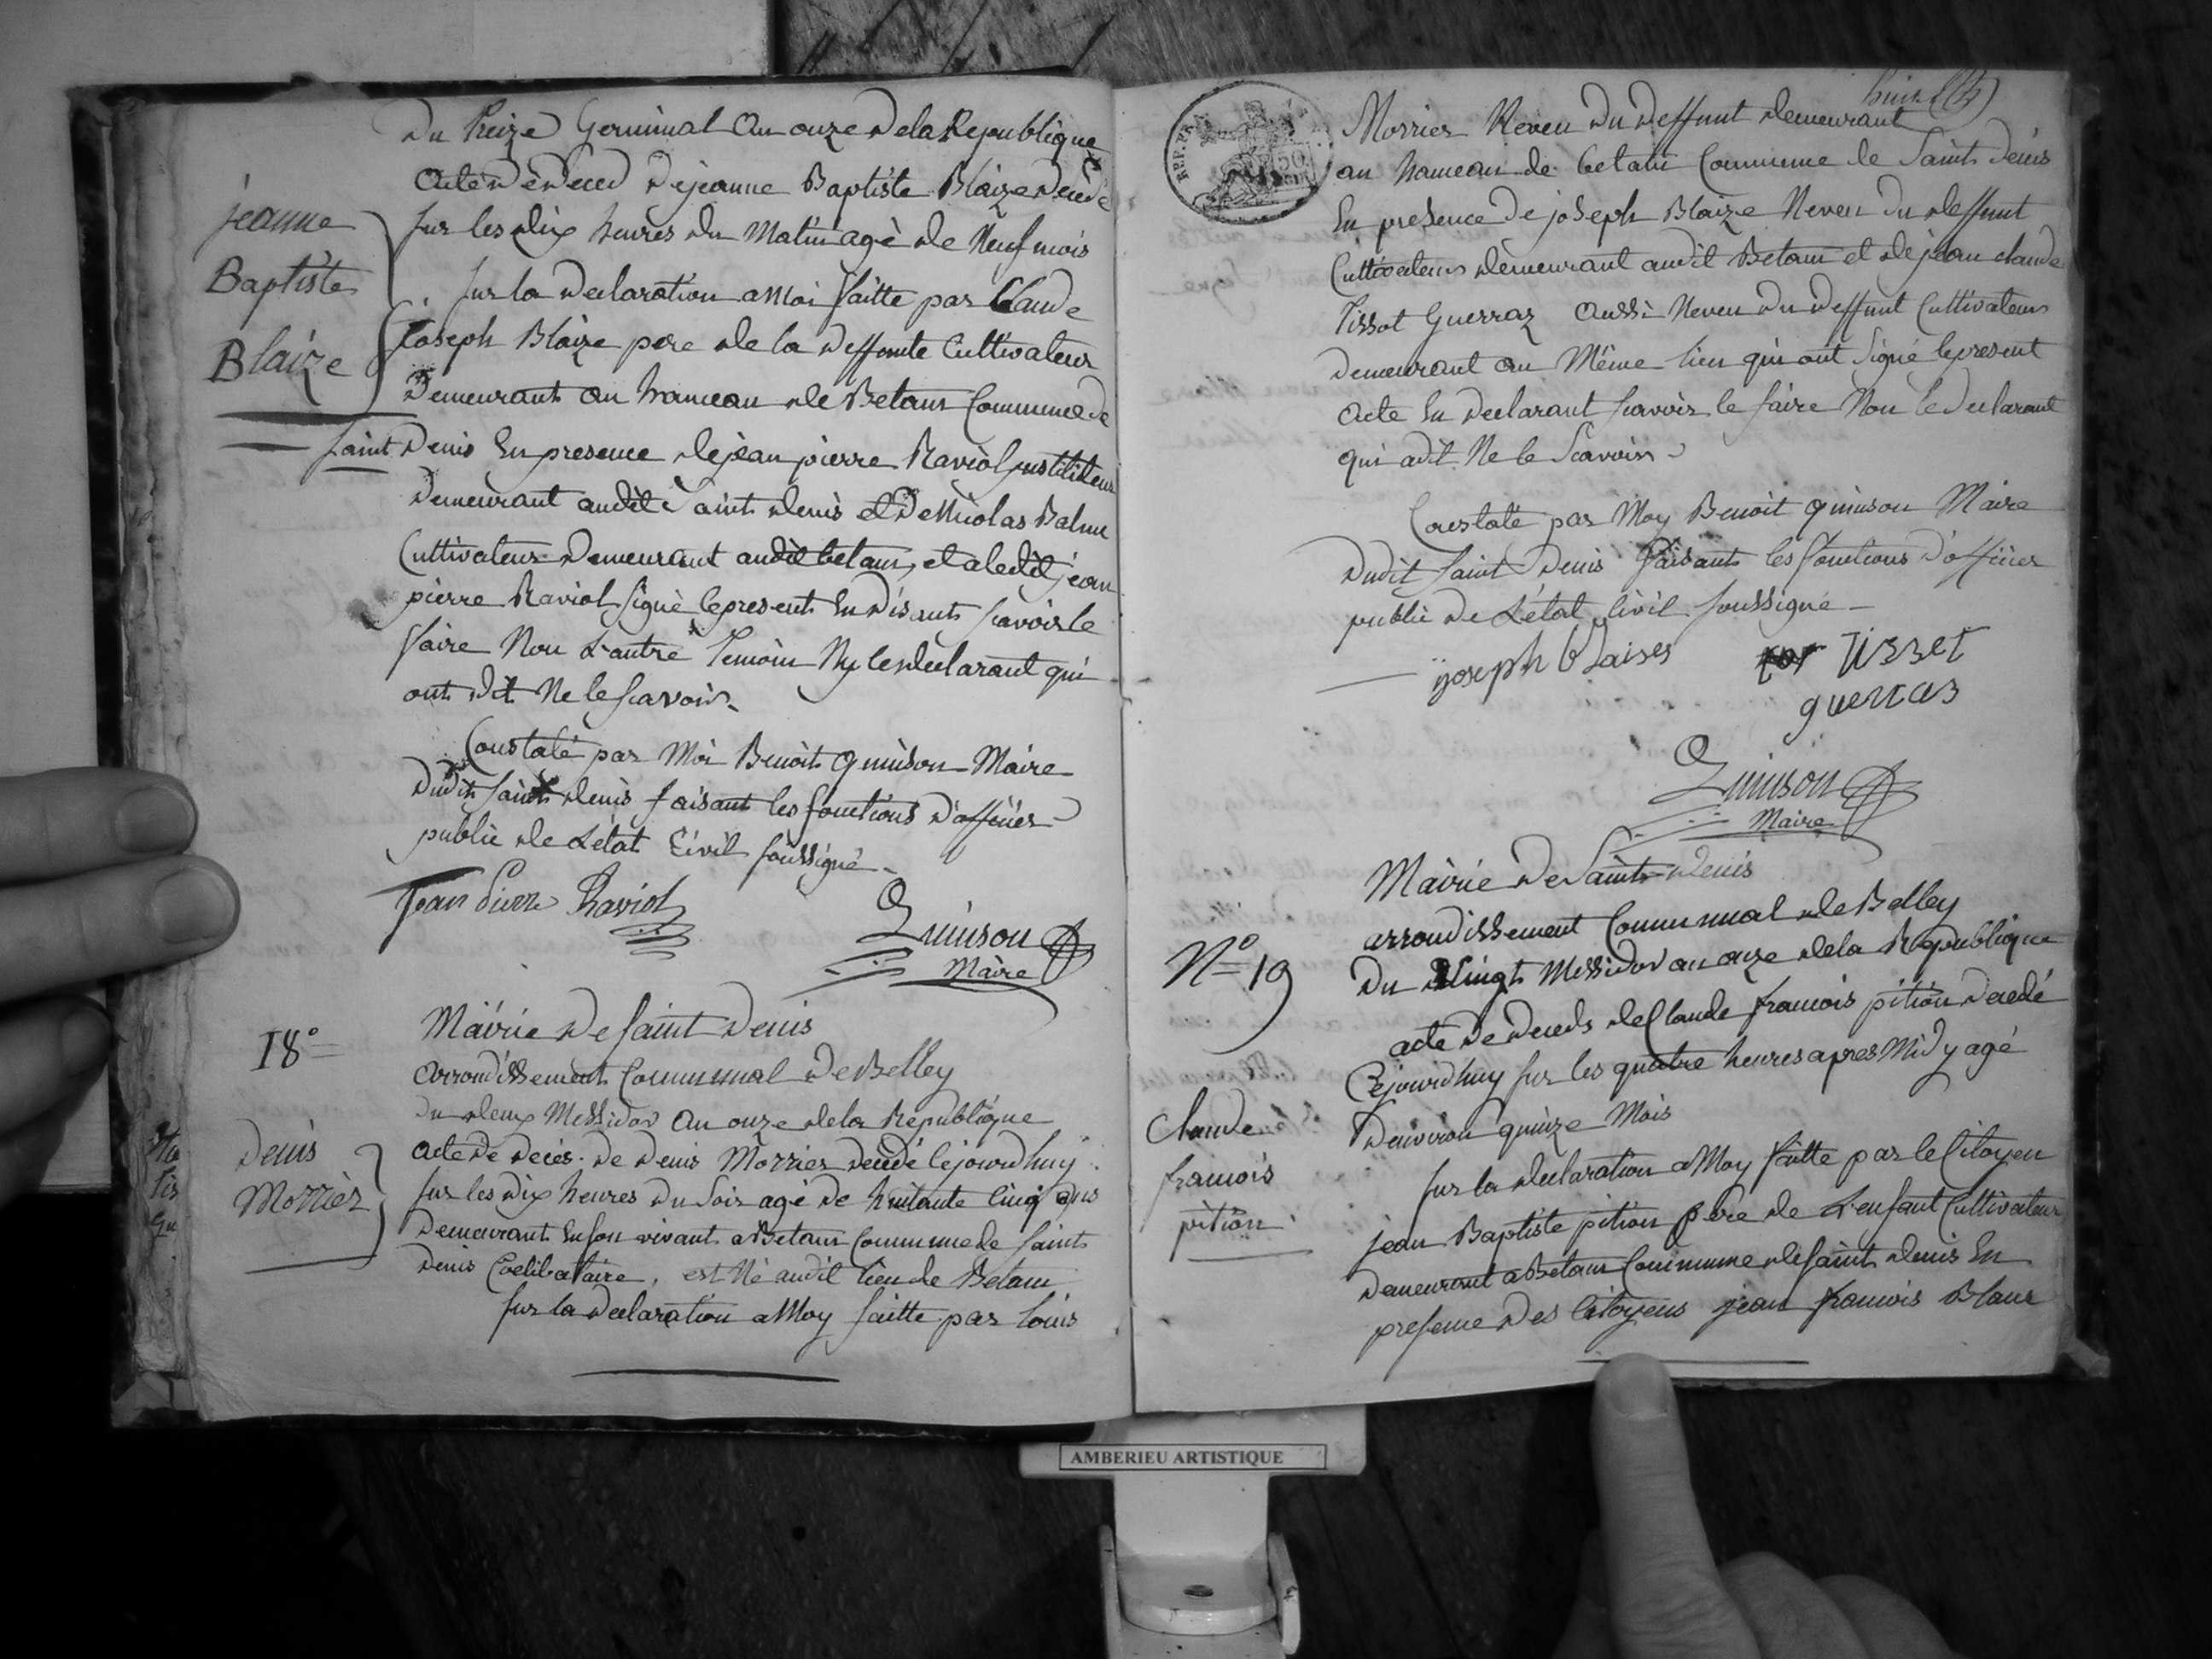 Du treize Germinal an onze de la Republique
acte de deces de jeanne Baptiste Blaize decedé
sur les dix heures du Matin agé de Neuf mois
sur la declaration a Moi faitte par Claude
Joseph Blaize pere de la deffunte Cultivateur
Demeurant au hameau de Betans Commune de
Saint Denis En presence de jean pierre Raviol instituteur
Demeurant audit Saint denis et De Nicolas Balme
Cultivateur Demeurant audit betans, et a ledit jean
pierre Raviol signé le present En disant scavoir le
faire Non L'autre Temoin Ny le declarant qui
ont dit Ne le scavoir
Constaté par Moi Benoit quinson Maire
Dudit saint denis faisant les fonctions d'officier
public de L'etat Civil soussigné
Jean Pierre Raviol
Quinson
Maire
jeanne
Baptiste
Blaize
18°
Mairie De saint Denis
arrondissement Communal De Belley
Du deux Messidor an onze de la Republique
acte De Deces De Denis Morrier decedé cejourdhuy
sur les dix heures du soir agé de huitante cinq ans
Demeurant En son vivant a Betans Commune de saint
Denis Coelibataire, est Né audit lieu de Betans
sur la declaration a Moy faitte par louis
Denis
Morrier
Morrier Neveu du deffunt demeurant
au hameau de betans Commune de saint denis
En presence de joseph Blaize Neveu du deffunt
Cultivateur demeurant audit Betans et de jean claude
Tissot Guerraz aussi Neveu du deffunt Cultivateur
demeurant au Même lieu qui ont signé le present
acte En declarant scavoir le faire Non le declarant
qui a dit Ne le scavoir
Constaté par Moy Benoit quinson Maire
Dudit saint Denis faisant les fonctions d'officier
public de L'etat Civil soussigné
joseph blaises
Tisset
guerras
Quinson
Maire
Mairie De Saint Denis
arrondissement Communal de Belley
N° 19
Du Vingt Messidor an onze de la Republique
acte De deceds de Claude francois pition decedé
Cejourdhuy sur les quatre heures apres Midy agé
Denviron quinze Mois
sur la declaration a Moy faitte par le Citoyen
jean Baptiste pition pere de L'enfant Cultivateur
demeurant a Betans Commune de saint denis En
presence Des Citoyens jean francois Blanc
Claude
francois
pition
AMBERIEU ARTISTIQUE